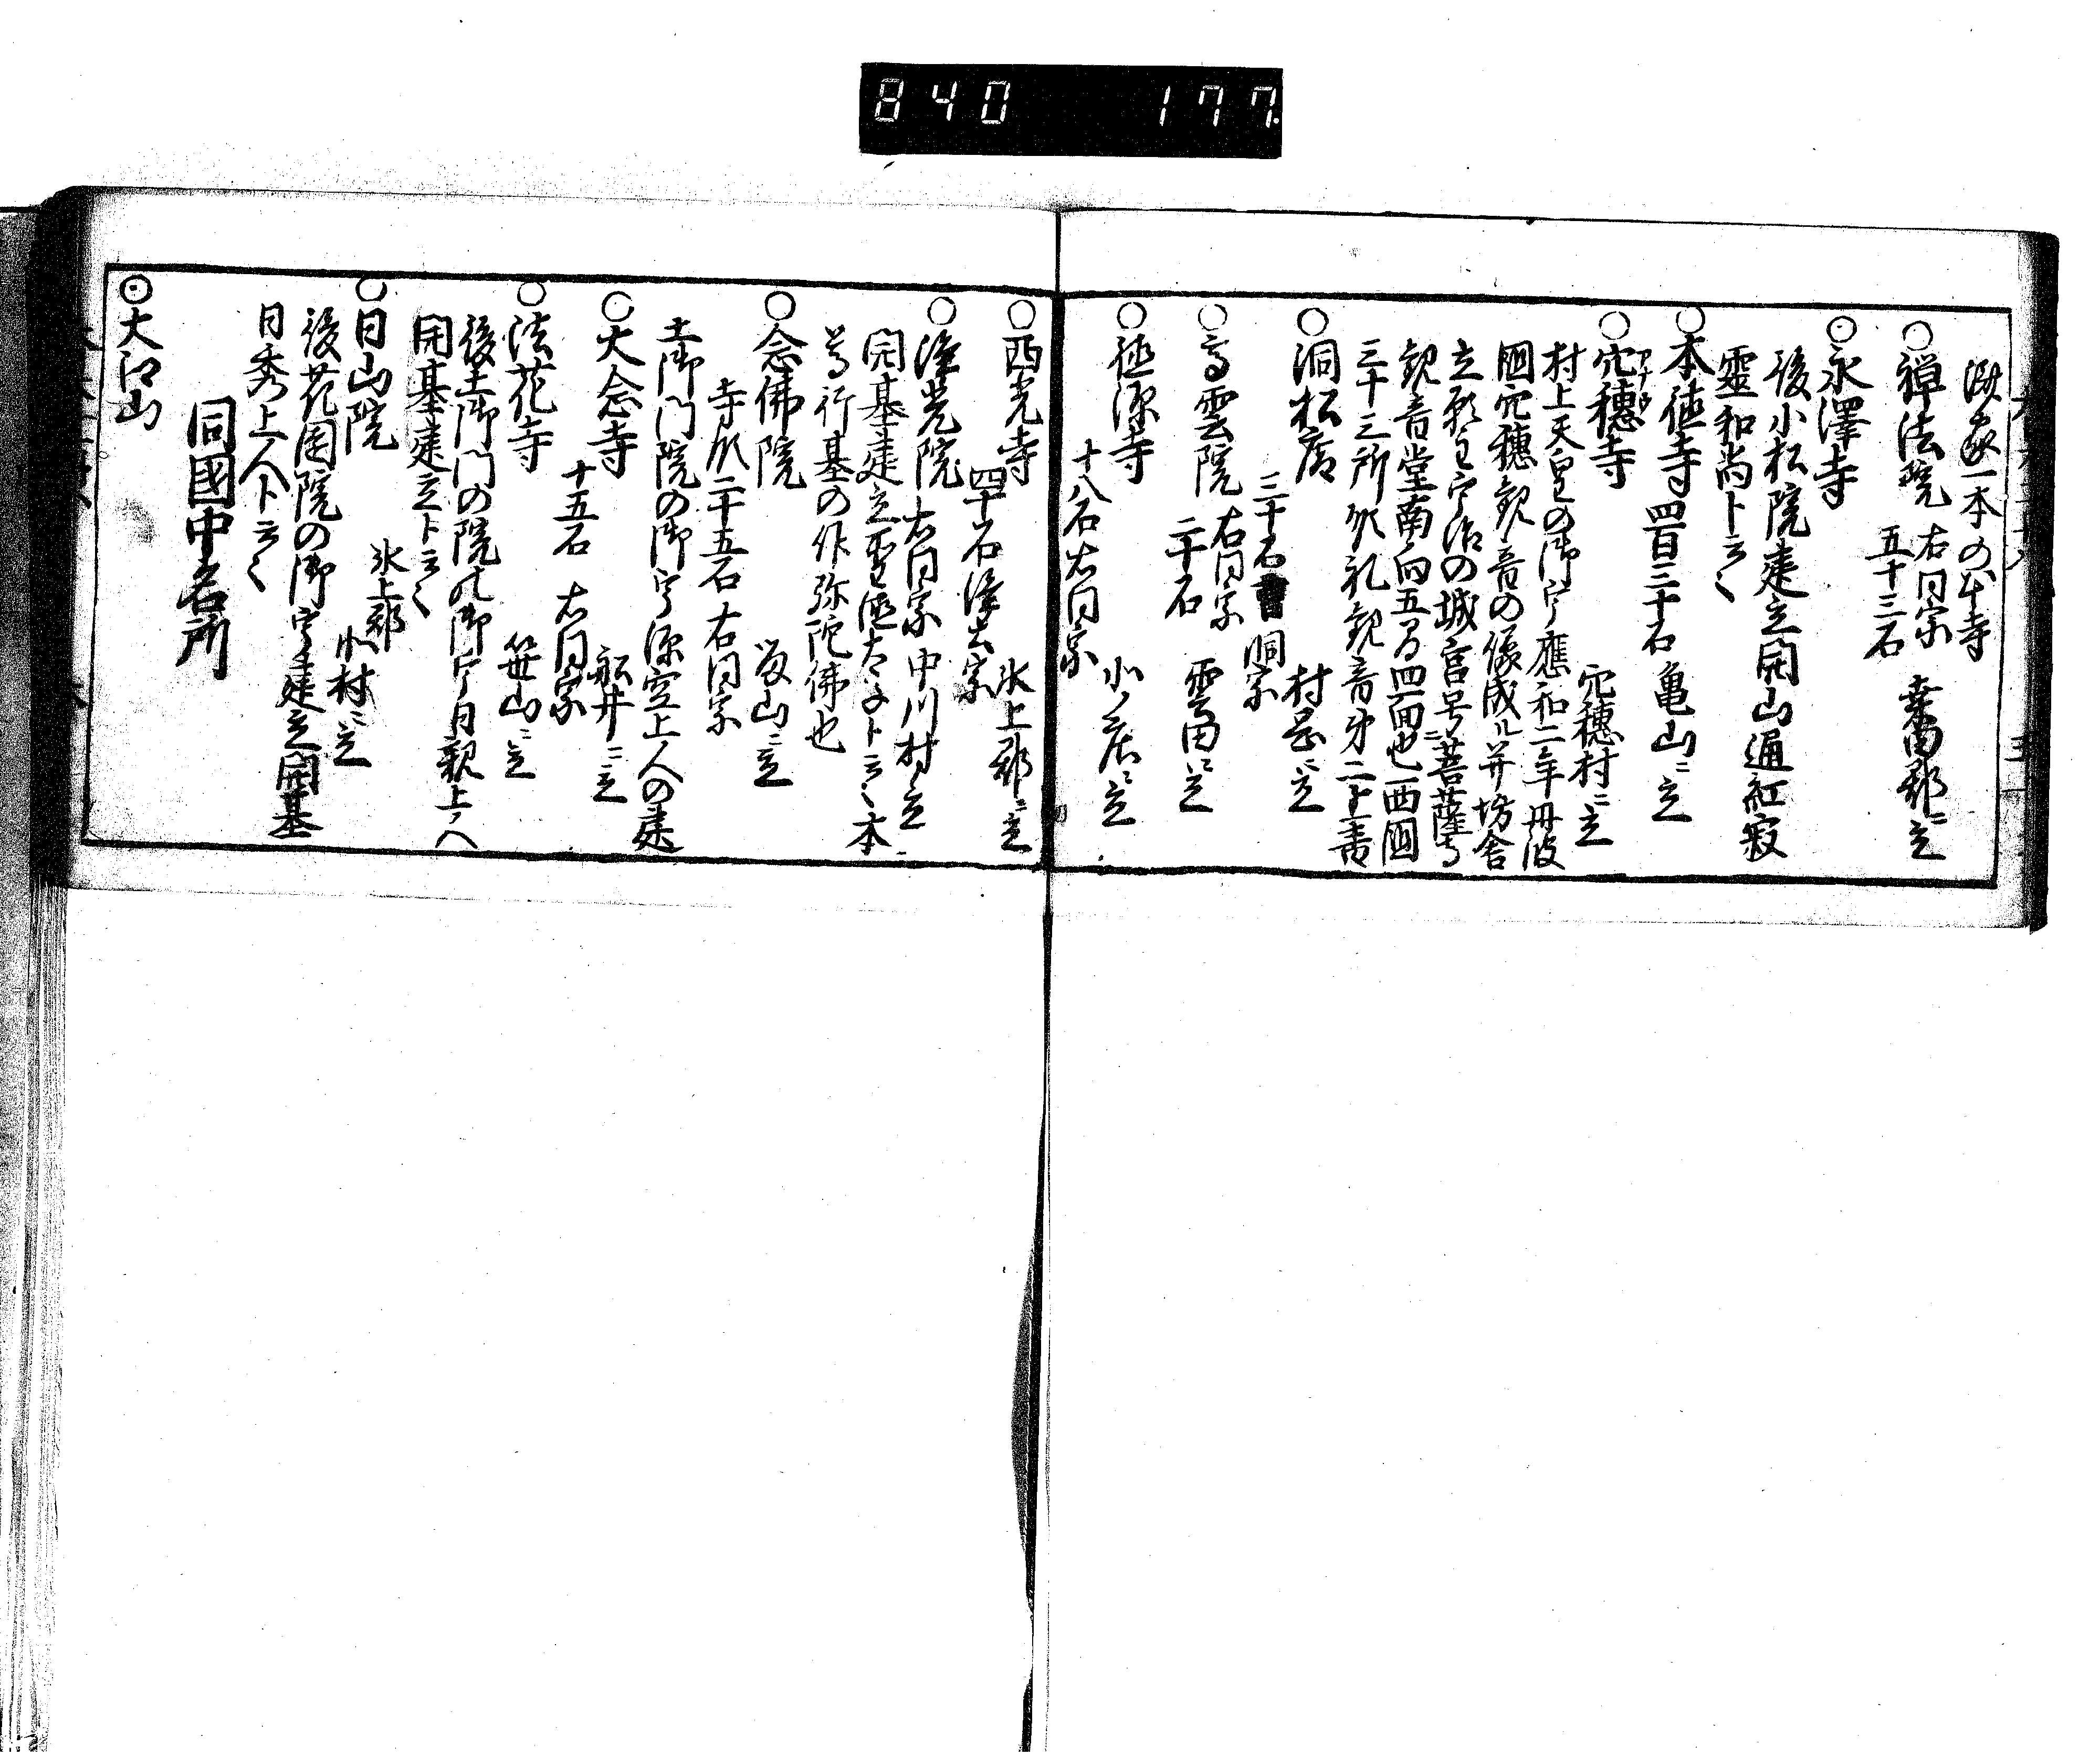 840 177.
派一本の本寺
○禅法院 右同宗 五十三石 桑田郡ニ立
◎永澤寺
後小松院建立開山通幻寂
霊和尚ト云々
○本徳寺 四百三十石 亀山ニ立
○穴穂寺 穴穂村ニ立
村上天皇の御宇應和二年丹波
國穴穂観音の像成ル并坊舎
観音堂南向五間四面也西國
三十三所順礼観音第二十一番
○洞松 三十石 洞家 村ニ立
○雲院 右同宗 二十石 雲田ニ立
○徳源寺 十八石右同宗
○西光寺 四十石浄土宗 氷上郡ニ立
○浄光院 右同宗 中川村ニ立
開基建立聖徳太子ト云々本
尊行基の作弥陀佛也
○念佛院 寺領二十五石 右同宗 山ニ立
土御門院の御宇源空上人の建
○大念寺 十五石 右同宗 船井ニ立
○法花寺 笹山ニ立
後土御門の院の御宇日親上人
開基建立ト云々
○日山院 氷上郡 村ニ立
後花園院の御宇建立開基
日秀上人ト云々
同國中名所
◎大江山